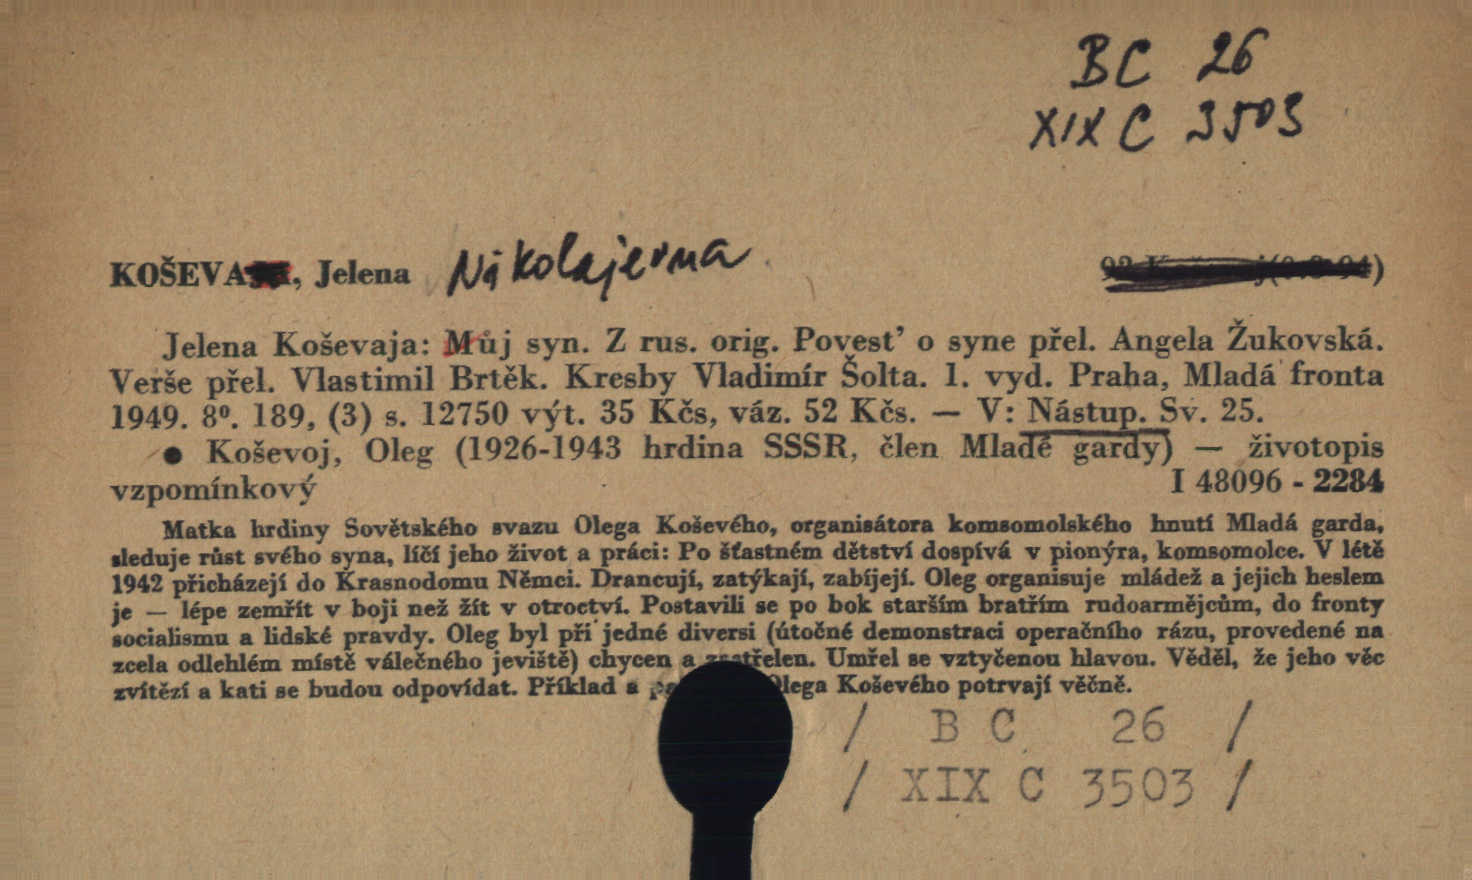 BC 26
XIX C 3503
KOŠEVA, Jelena Nikolajevna
Jelena Koševaja: Můj syn. Z rus. orig. Povest’ o syne přel. Angela Žukovská.
Verše přel. Vlastimil Brtěk. Kresby Vladimír Šolta. 1. vyd. Praha, Mladá fronta
1949. 8⁰. 189, (3) s. 12750 výt. 35 Kčs, váz. 52 Kčs. — V: Nástup. Sv. 25.
● Koševoj, Oleg (1926-1943 hrdina SSSR, člen Mladé gardy) — životopis
vzpomínkový I 48096 - 2284
Matka hrdiny Sovětského svazu Olega Koševého, organisátora komsomolského hnutí Mladá garda,
sleduje růst svého syna, líčí jeho život a práci: Po šťastném dětství dospívá v pionýra, komsomolce. V létě
1942 přicházejí do Krasnodomu Němci. Drancují, zatýkají, zabíjejí. Oleg organisuje mládež a jejich heslem
je — lépe zemřít v boji než žít v otroctví. Postavili se po bok starším bratřím rudoarmějcům, do fronty
socialismu a lidské pravdy. Oleg byl při jedné diversi (útočné demonstraci operačního rázu, provedené na
zcela odlehlém místě válečného jeviště) chycen a zastřelen. Umřel se vztyčenou hlavou. Věděl, že jeho věc
zvítězí a kati se budou odpovídat. Příklad a Olega Koševého potrvají věčně.
/ B C 26 /
/ XIX C 3503 /